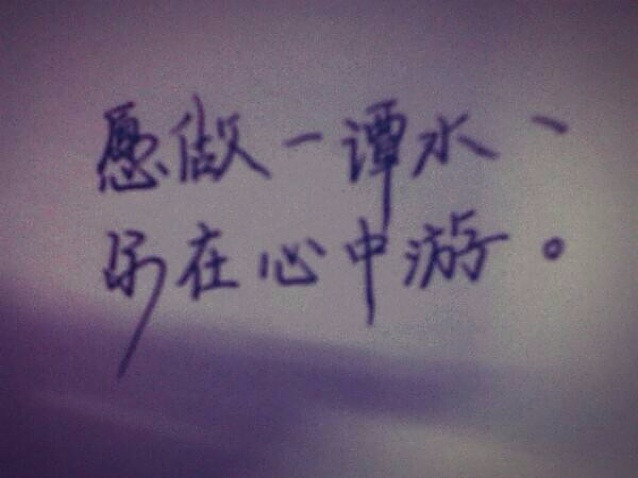 愿做一谭水、
在心中游。